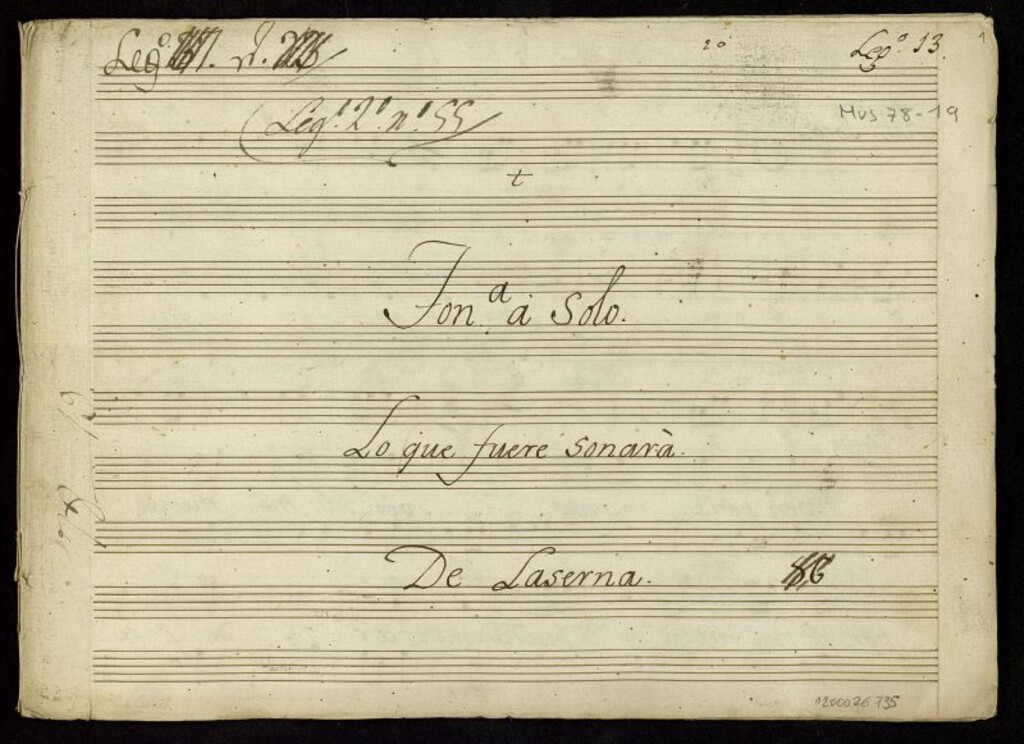 Leg.º n.º
20
Leg.º 13.
1
Mus 78-19
Leg.º 2.º n.º 55
t
Ton.ª a solo.
Lo que fuere sonarà.
De Laserna.
1200026735